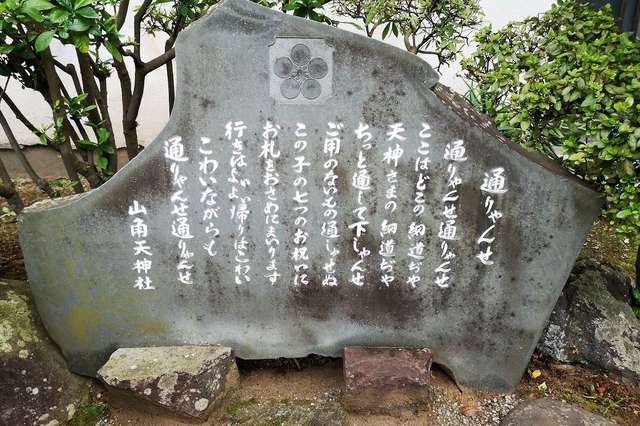 通りゃんせ
通りゃんせ通りゃんせ
ここはどこの細道ぢや
天神さまの細道ぢや
ちっと通して下しゃんせ
ご用のないもの通しゃせぬ
この子の七つのお祝いに
お札をおさめにまいります
行きはよい帰りはこわい
こわいながらも
通りゃんせ通りゃんせ
山角天神社